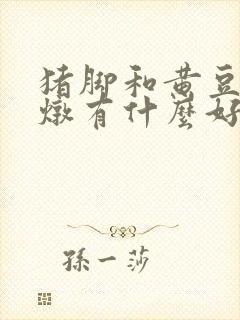 猪脚和黄豆
燉有什麼好
孫一莎